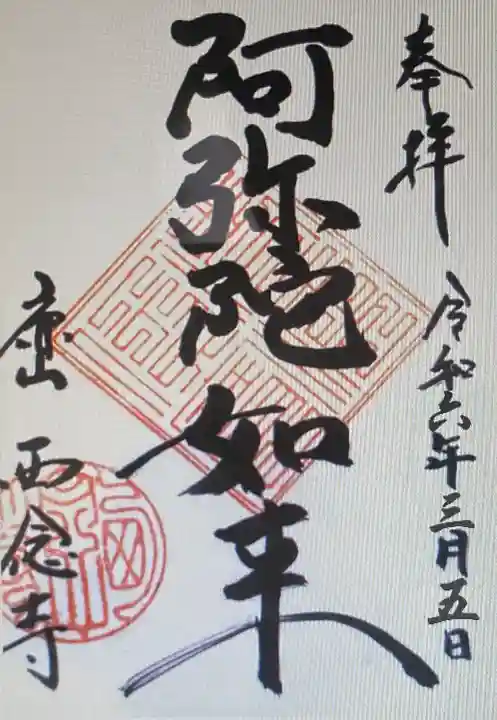 奉拝
令和六年三月五日
阿弥陀如来
西念寺